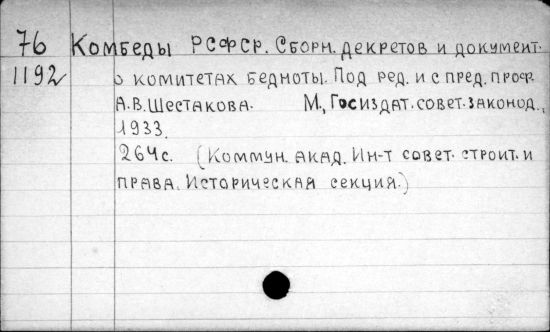 76 Комбеды РСФСР. Сборн. декретов и документ.
1192 о комитетах бедноты. Под ред. и с пред. проф.
А.В. Шестакова. М., Госиздат. совет. законод.,
1933.
264 с. (Коммун. акад. Ин-т совет. строит. и
права. Историческая секция.)